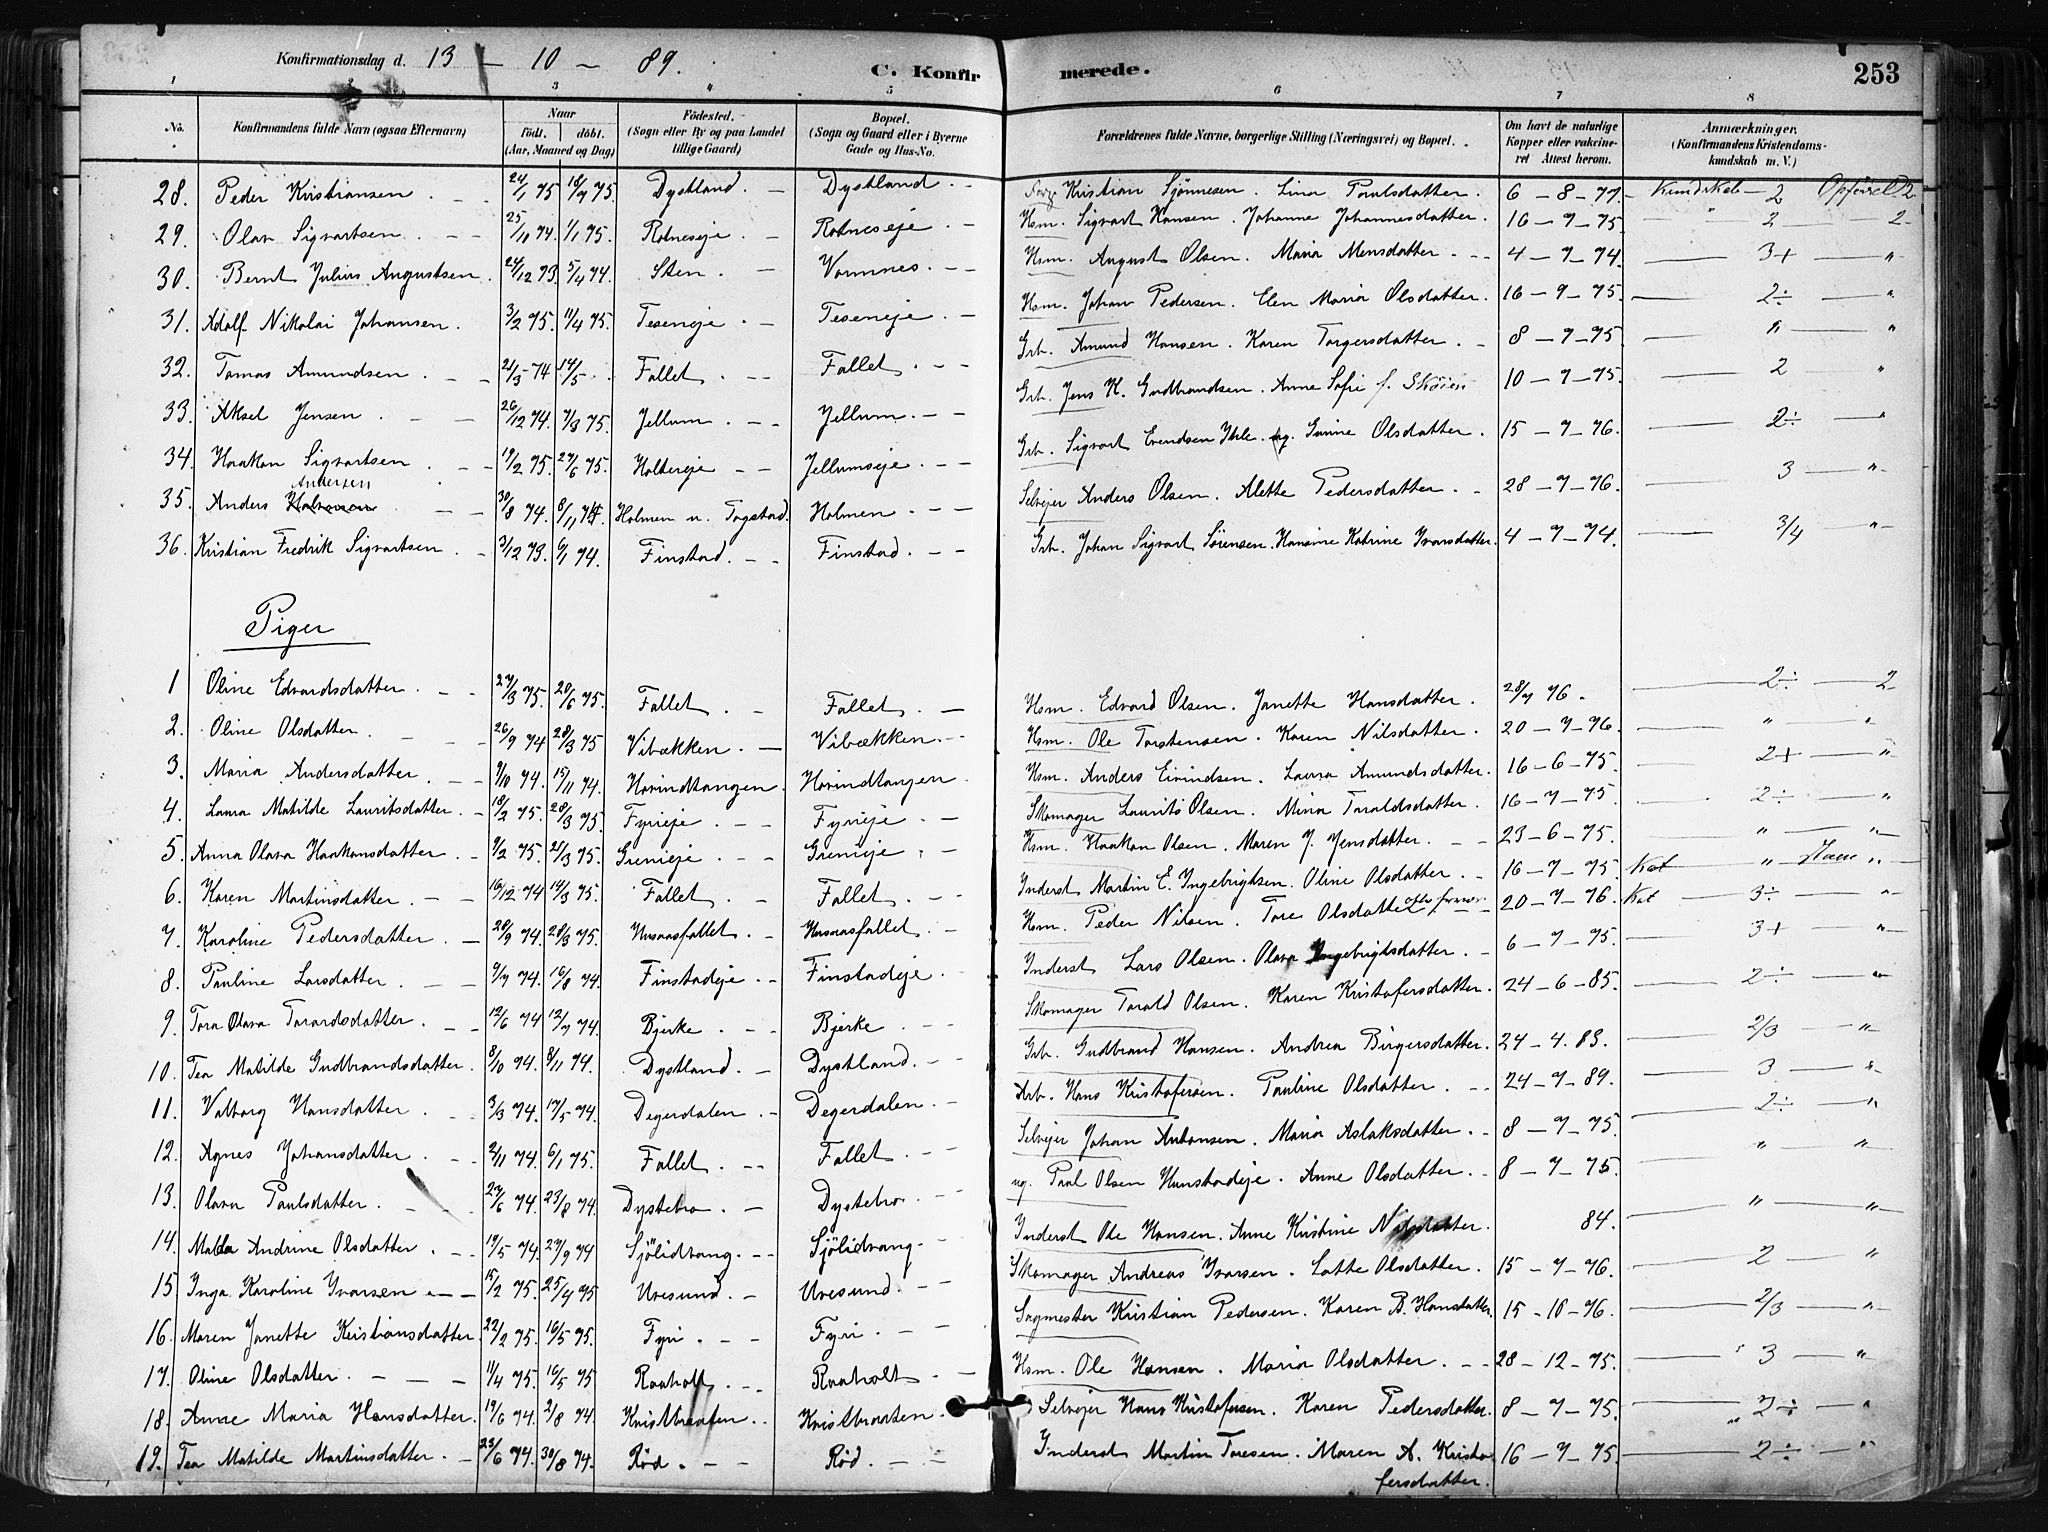 Konfirmationsdag d. 13 — 10 — 89.
C. Konfirmerede.
253
1 2 3 4 5 6 7 8
No.
Konfirmandens fulde Navn (ogsaa Efternavn)
Naar født. døbt. (Aar, Maaned og Dag)
Fødested. (Sogn eller By og paa Landet tillige Gaard)
Bopæl. (Sogn og Gaard eller i Byerne Gade og Hus-No.
Forældrenes fulde Navne, borgerlige Stilling (Næringsvei) og Bopæl.
Om havt de naturlige Kopper eller vakcineret Attest herom.
Anmærkninger. (Konfirmandens Kristendomskundskab m. V.)
28. Peder Kristiansen 24/1 75 18/7 75. Dystland. Dystland Kristian Sjønnesen. Lina Paulsdatter. 6 — 8 — 77. Kundskab — 2 Opførsel 2
29. Olav Sigvartsen. 25/10 74. 1/1 75. Rotneseje Rotneseje Hsm. Sigvart Hansen. Johanne Johannesdatter. 16 — 7 — 75. 2 2
30. Bernt Julius Augustsen. 24/12 73. 5/4 74. Sten. Vormnes. Hsm. August Olsen. Maria Monsdatter. 4 — 7 — 74. 3+ "
31. Adolf Nikolai Johansen. 3/2 75. 11/4 75. Teseneje Teseneje Hsm. Johan Pedersen. Elen Maria Olsdatter. 16 — 9 — 75. 2÷ "
32. Tomas Amundsen 21/3 74 14/5 Fallet Fallet Grb. Amund Hansen. Karen Torgersdatter. 8 — 7 — 75. " "
33. Aksel Jensen 26/12 74. 7/3 75. Jellum. Jellum. Grb. Jens K. Gudbrandsen. Anne Sofie f. Skøien 10 — 7 — 75. 2 "
34. Haakon Sigvartsen 19/2 75. 27/6 75. Holtereje Jellumseje Grb. Sigvart Evendsen Ihle. og. Gunine Olsdatter. 15 — 7 — 76. 2÷ "
35. Anders Andersen 30/8 74. 8/11 74. Holmen u. Togstad. Holmen Selvejer Anders Olsen. Alette Pedersdatter. 28 — 7 — 76. 3 "
36. Kristian Fredrik Sigvartsen 3/12 73. 6/1 74. Finstad. Finstad. Grb. Johan Sigvart Sørensen. Hansine Katrine Ivarsdatter. 4 — 7 — 74. 3/4 "
Piger
1 Oline Edvardsdatter. 27/3 75. 20/6 75. Fallet. Fallet. Hsm. Edvard Olsen. Janette Hansdatter. 28/7 76. 2÷ 2
2. Oline Olsdatter. 26/9 74 28/3 75 Vibækken. Vibækken. Hsm. Ole Torstensen. Karen Nilsdatter. 20 — 7 — 76. " "
3. Maria Andersdatter. 9/10 74. 15/11 74. Hovindtangen. Hovindtangen Hsm. Anders Eivindsen. Laura Amundsdatter. 16 — 6 — 75. 2+ "
4. Laura Matilde Lauritsdatter 18/2 75. 28/3 75. Fyrieje Fyrieje Skomager Laurits Olsen. Mina Taraldsdatter. 16 — 7 — 75. 2÷ "
5. Anna Olava Haakonsdatter. 9/2 75. 21/3 75. Grenieje Grenieje Hsm. Haakon Olsen. Maren J. Jensdatter. 23 — 6 — 75. " "
6. Karen Martinsdatter. 16/12 74 14/3 75. Fallet. Fallet. Inderst Martin E. Ingebrigtsen. Oline Olsdatter. 16 — 7 — 75. Kat "
7. Karoline Pedersdatter. 20/9 74. 28/3 75. Husaasfallet Husaasfallet. Hsm. Peder Nilsen. Tore Olsdatter 20 — 7 — 76. Kat 3÷ "
8. Pauline Larsdatter. 9/7 74. 16/8 74. Finstadeje Finstadeje. Inderst Lars Olsen. Olava Ingebrigtsdatter. 6 — 7 — 75. 3+ "
9. Tora Olava Taraldsdatter. 12/6 74. 12/7 74. Bjerke Bjerke Skomager Tarald Olsen. Karen Kristofersdatter. 24 — 6 — 85. 2÷ "
10. Tea Matilde Gudbrandsdatter. 8/10 74. 8/11 74. Dystland. Dystland. Grb. Gudbrand Hansen. Andrea Birgersdatter. 24 — 4. 83. 2/3 "
11. Valborg Hansdatter 3/3 74. 17/5 74. Degerdalen. Degerdalen. Arb. Hans Kristofersen. Pauline Olsdatter. 24 — 7 — 89. 3 "
12. Agnes Johansdatter. 2/11 74. 6/1 75. Fallet. Fallet. Selvejer Johan Antonsen. Maria Aslaksdatter. 8 — 7 — 75. 2÷ "
13. Olava Paulsdatter. 27/6 74. 23/8 74. Dystebro. Dystebro. Paal Olsen Hunstadeje. Anne Olsdatter. 8 — 7 — 75 " "
14. Malda Andrine Olsdatter. 19/5 74. 27/9 74 Sjölidvang. Sjölidvang Inderst Ole Hansen. Anne Kristine Nilsdatter. 84. " "
15. Inga Karoline Ivarsen 15/2 75. 25/4 75 Uvesund. Uvesund. Skomager Andreas Ivarsen. Lotte Olsdatter. 15 — 7 — 76. 2 "
16. Maren Janette Kristiansdatter. 22/2 75. 16/5 75. Fyri. Fyri. Sagmester Kristian Pedersen. Karen B. Hansdatter. 15 — 10 — 76. 2/3 "
17. Oline Olsdatter. 11/4 75. 16/5 75 Raaholt Raaholt Hsm. Ole Hansen. Maria Olsdatter. 28 — 12 — 75. 3 "
18. Anne Maria Hansdatter. 19/6 74. 2/8 74. Kristbraaten Kristbraaten. Selvejer Hans Kristofersen. Karen Pedersdatter. 8 — 7 — 75. 2÷ "
19. Tea Matilde Martinsdatter. 23/6 74. 30/8 74. Rød. Rød. Inderst Martin Toresen. Maren A. Kristofersdatter. 16 — 7 — 75. 2÷ "